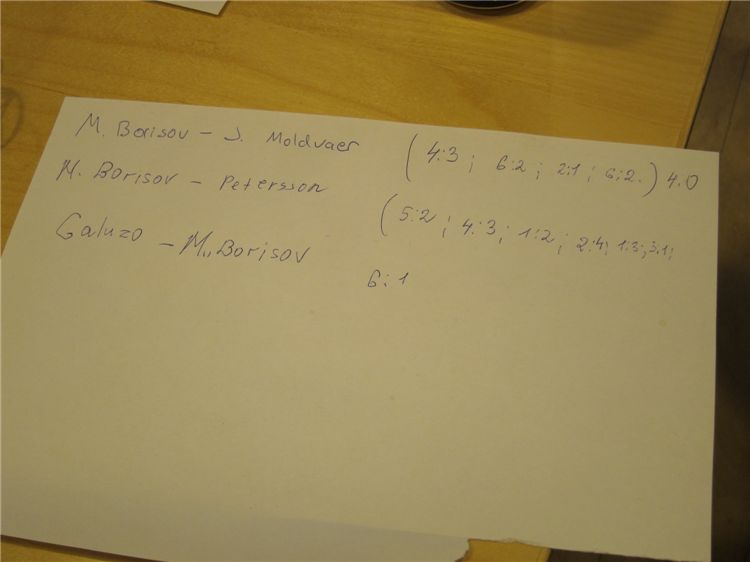 M. Borisov – J. Moldvaer (4:3; 6:2; 2:1; 6:2.) 4:0
M. Borisov – Petersson (5:2; 4:3; 1:2; 2:4; 1:3; 3:1;
Galuzo – M. Borisov 6:1